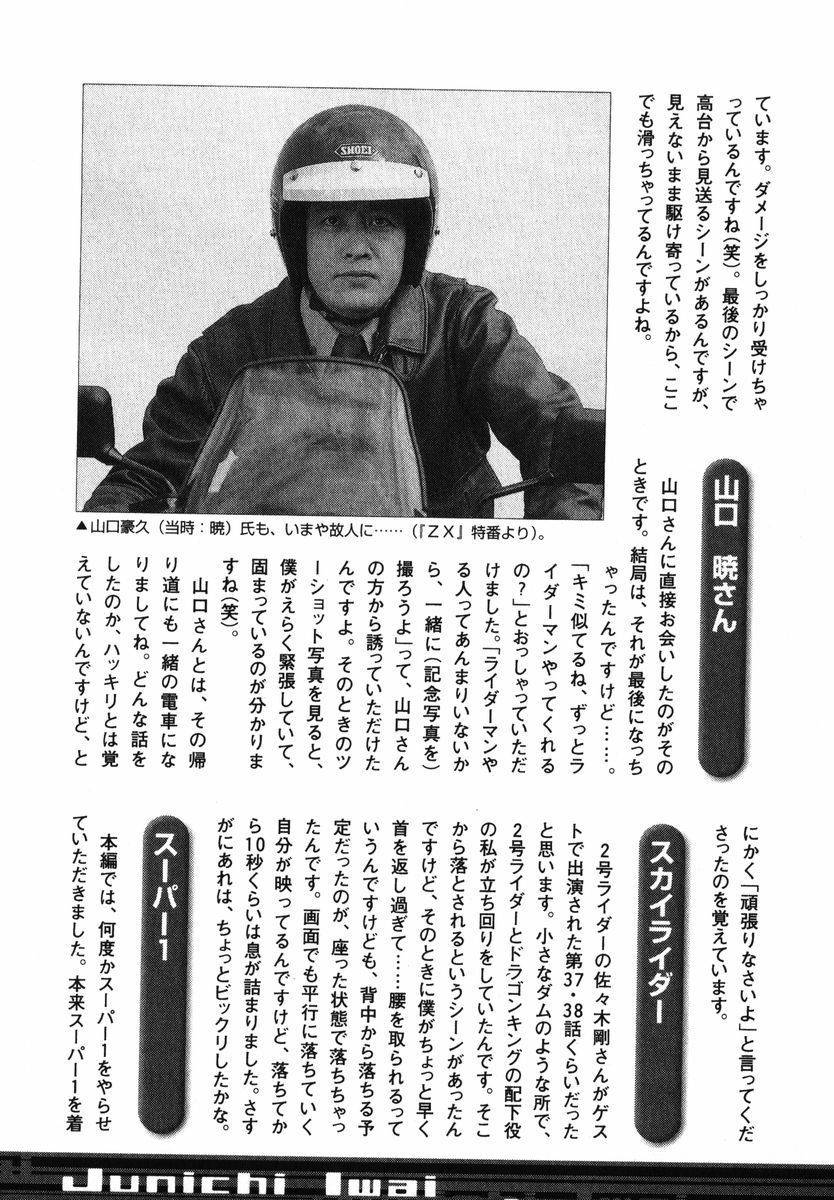 ています。ダメージをしっかり受けちゃ
っているんですね(笑)。最後のシーンで
高台から見送るシーンがあるんですが、
見えないまま駆け寄っているから、ここ
でも滑っちゃってるんですよね。
SHOEI
▲山口豪久（当時：暁）氏も、いまや故人に……（『ＺＸ』特番より）。
山口 暁さん
山口さんに直接お会いしたのがその
ときです。結局は、それが最後になっち
ゃったんですけど……。
「キミ似てるね、ずっとラ
イダーマンやってくれる
の?」とおっしゃっていただ
けました。「ライダーマンや
る人ってあんまりいないか
ら、一緒に(記念写真を)
撮ろうよ」って、山口さん
の方から誘っていただけた
んですよ。そのときのツ
ーショット写真を見ると、
僕がえらく緊張していて、
固まっているのが分かりま
すね(笑)。
山口さんとは、その帰
り道にも一緒の電車にな
りましてね。どんな話を
したのか、ハッキリとは覚
えていないんですけど、と
にかく「頑張りなさいよ」と言ってくだ
さったのを覚えています。
スカイライダー
2号ライダーの佐々木剛さんがゲス
トで出演された第37・38話くらいだった
と思います。小さなダムのような所で、
2号ライダーとドラゴンキングの配下役
の私が立ち回りをしていたんです。そこ
から落とされるというシーンがあったん
ですけど、そのときに僕がちょっと早く
首を返し過ぎて……腰を取られるって
いうんですけども、背中から落ちる予
定だったのが、座った状態で落ちちゃっ
たんです。画面でも平行に落ちていく
自分が映ってるんですけど、落ちてか
ら10秒くらいは息が詰まりました。さす
がにあれは、ちょっとビックリしたかな。
スーパー1
本編では、何度かスーパー1をやらせ
ていただきました。本来スーパー1を着
Junichi Iwai